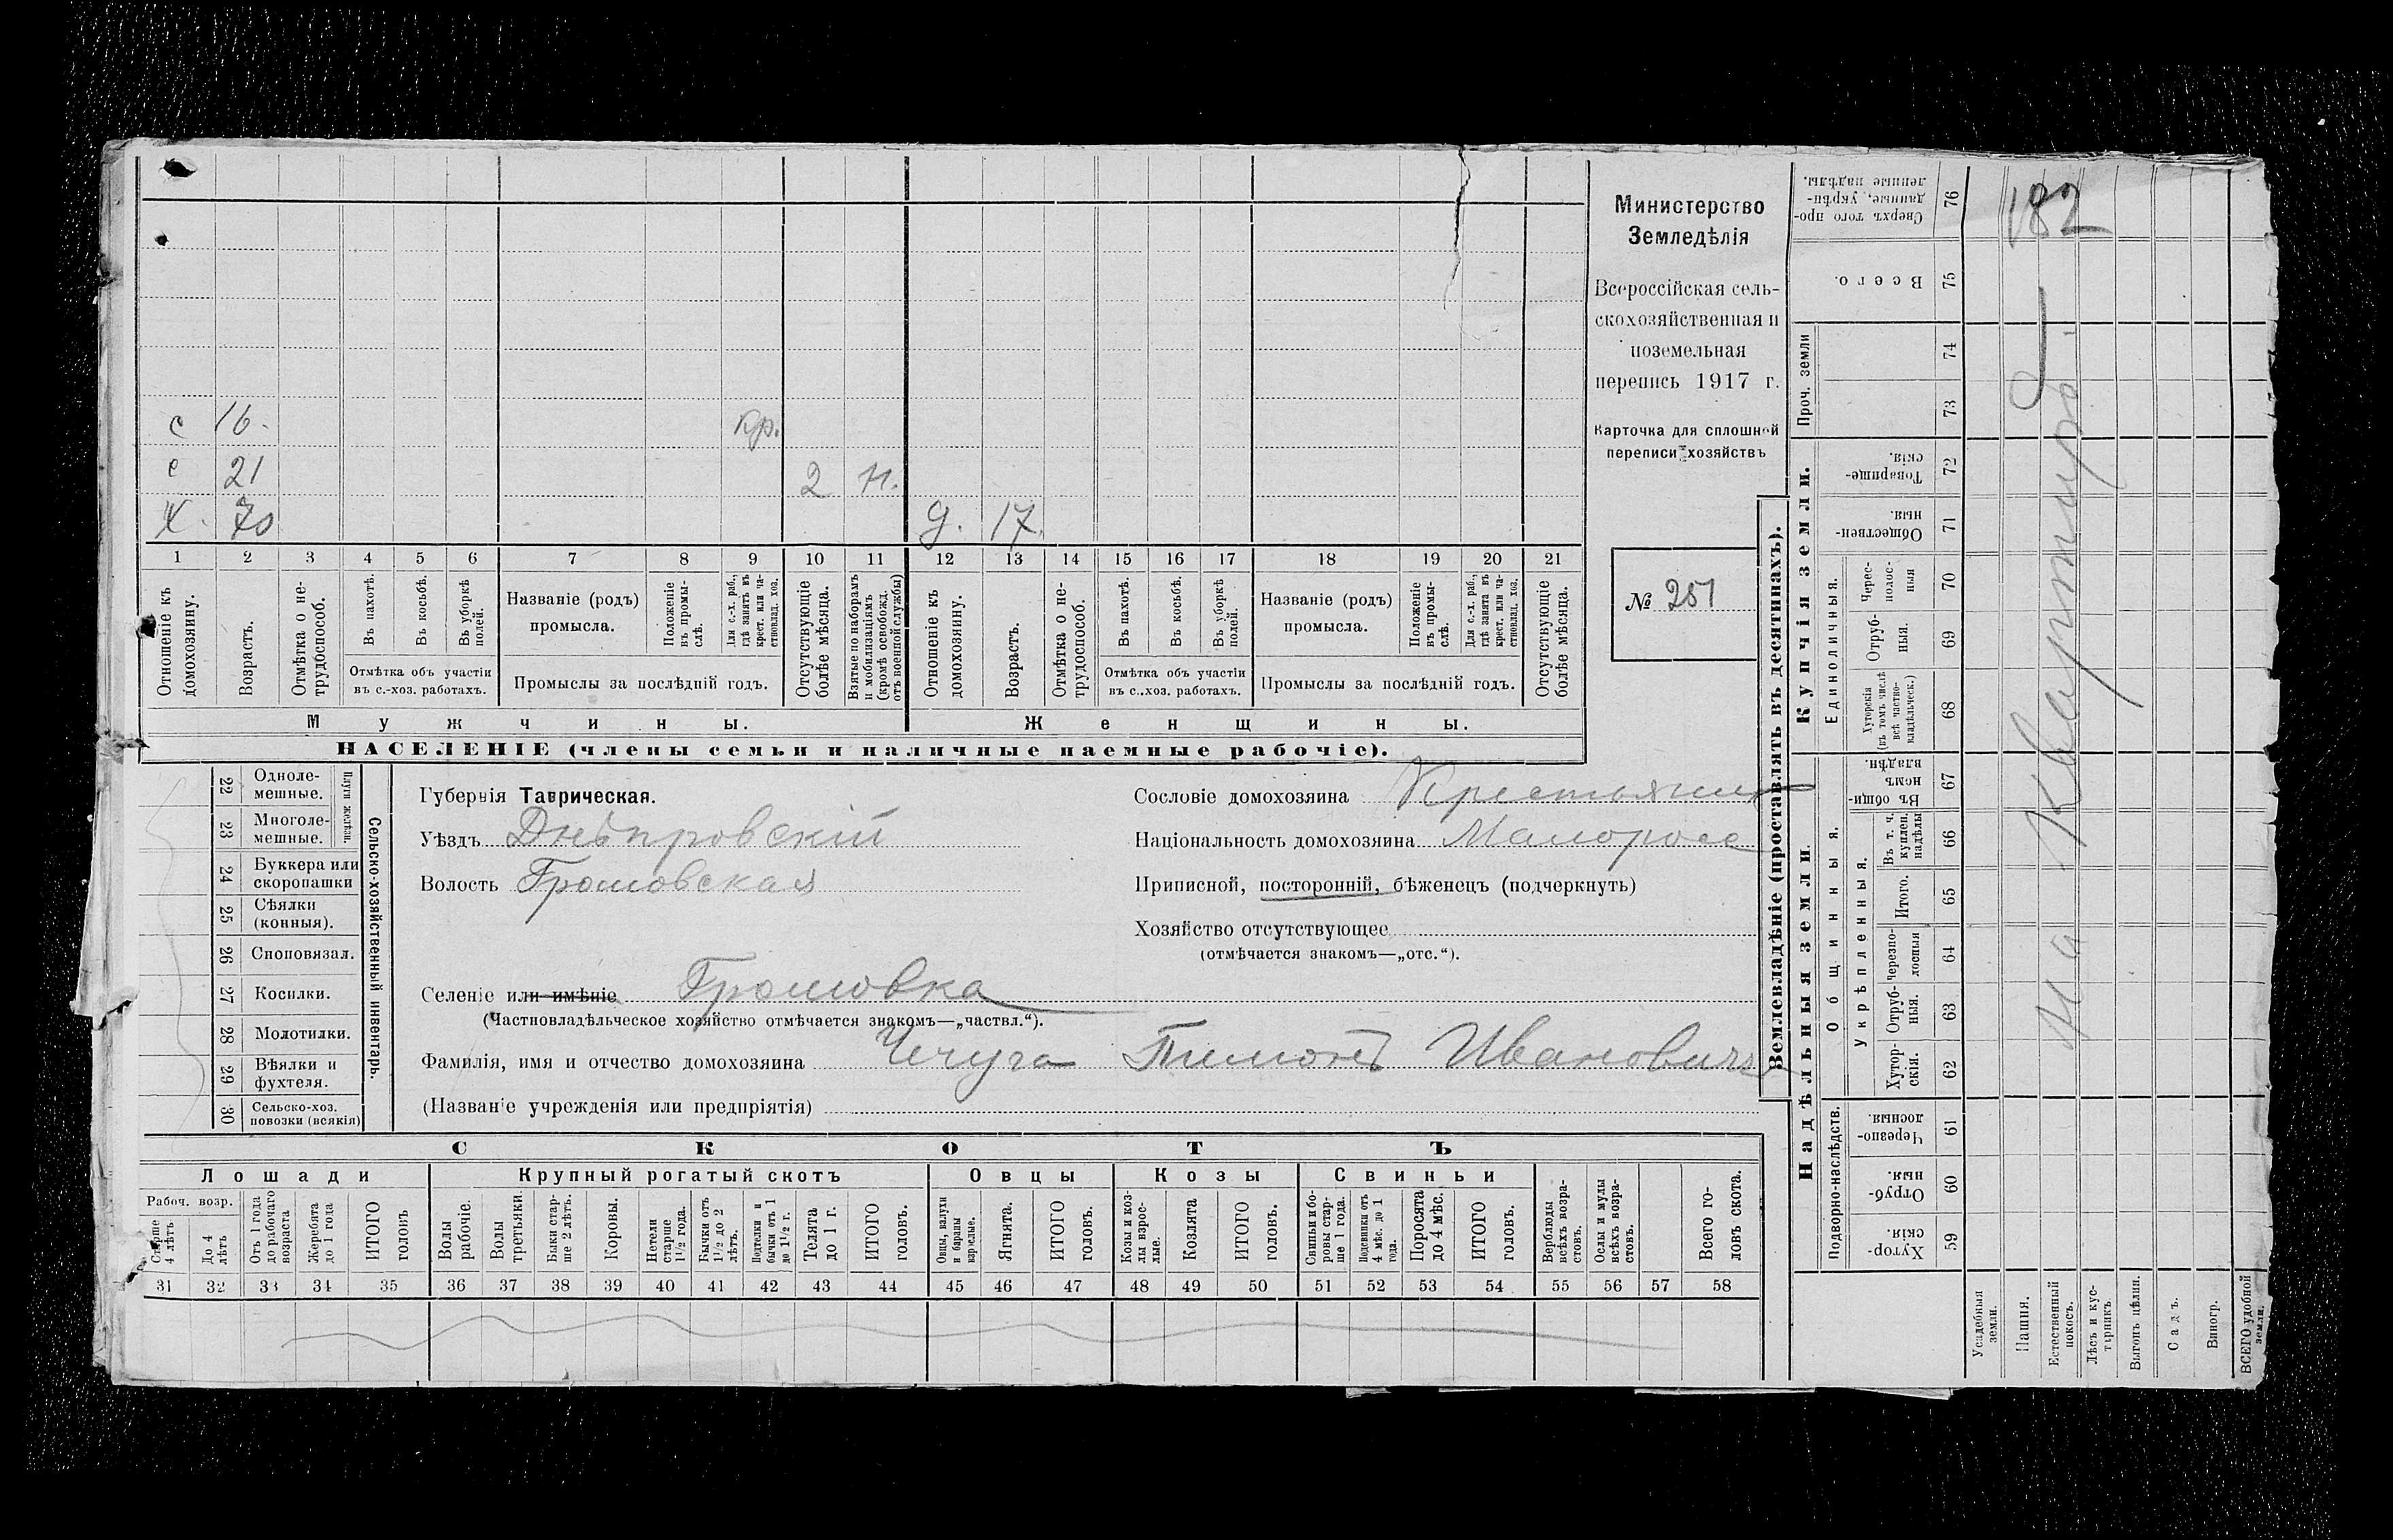 182
Министерство
Земледѣлія
Всероссійская сель-
скохозяйственная и
поземельная
перепись 1917 г.
Карточка для сплошной
переписи хозяйствъ
№ 251
с 16. Кр.
с 21 2 н.
Х. 70 д. 17.
1 2 3 4 5 6 7 8 9 10 11 12 13 14 15 16 17 18 19 20 21
Отношеніе къ домохозяину.
Возрастъ.
Отмѣтка о не-трудоспособ.
Въ пахотѣ.
Въ косьбѣ.
Въ уборкѣ полей.
Отмѣтка объ участіи
въ с.-хоз. работахъ.
Названіе (родъ)
промысла.
Положеніе въ промы-слѣ.
Для с.-х. раб., гдѣ занятъ въ крест. или ча-стновлад. хоз.
Промыслы за послѣдній годъ.
Отсутствующіе болѣе мѣсяца.
Взятые по наборамъ и мобилизаціямъ (кромѣ освобожд. отъ военной службы)
Отношеніе къ домохозяину.
Возрастъ.
Отмѣтка о не-трудоспособ.
Въ пахотѣ.
Въ косьбѣ.
Въ уборкѣ полей.
Отмѣтка объ участіи
въ с..хоз. работахъ.
Названіе (родъ)
промысла.
Положеніе въ промы-слѣ.
Для с.-х. раб., гдѣ занята въ крест. или ча-стновлад. хоз.
Промыслы за послѣдній годъ.
Отсутствующіе болѣе мѣсяца.
Мужчины.
Женщины.
НАСЕЛЕНІЕ (члены семьи и наличные наемные рабочіе).
22 Одноле-мешные.
23 Многоле-мешные.
Плуги желѣзн.
24 Буккера или скоропашки
25 Сѣялки (конныя).
26 Сноповязал.
27 Косилки.
28 Молотилки.
29 Вѣялки и фухтеля.
30 Сельско-хоз. повозки (всякія)
Сельско-хозяйственный инвентарь.
Губернія Таврическая.
Уѣздъ Днѣпровскій
Волость Громовская
Сословіе домохозяина Крестьянин
Національность домохозяина Малоросс
Приписной, посторонній, бѣженецъ (подчеркнуть)
Хозяйство отсутствующее
(отмѣчается знакомъ—„отс.“).
Селеніе или имѣніе Громовка
(Частновладѣльческое хозяйство отмѣчается знакомъ—„частвл.“).
Фамилія, имя и отчество домохозяина Чечуга Пимонъ Ивановичъ
(Названіе учрежденія или предпріятія)
СКОТЪ
Лошади
Крупный рогатый скотъ
Овцы
Козы
Свиньи
Рабоч. возр.
Старше 4 лѣтъ
До 4 лѣтъ
Отъ 1 года до рабочаго возраста
Жеребята до 1 года
ИТОГО головъ
Волы рабочіе.
Волы третьяки.
Быки стар-ше 2 лѣтъ.
Коровы.
Нетели старше 1½ года.
Бычки отъ 1½ до 2 лѣтъ.
Подтелки и бычки отъ 1 до 1½ г.
Телята до 1 г.
ИТОГО головъ.
Овцы, валухи и бараны взрослые.
Ягнята.
ИТОГО головъ.
Козы и коз-лы взрос-лые.
Козлята
ИТОГО головъ.
Свиньи и бо-ровы стар-ше 1 года.
Подсвинки отъ 4 мѣс. до 1 года.
Поросята до 4 мѣс.
ИТОГО головъ.
Верблюды всѣхъ возра-стовъ.
Ослы и мулы всѣхъ возра-стовъ.
Всего го-ловъ скота.
31 32 33 34 35 36 37 38 39 40 41 42 43 44 45 46 47 48 49 50 51 52 53 54 55 56 57 58
Землевладѣніе (проставлять въ десятинахъ).
Надѣльныя земли.
Купчія земли.
Проч. земли
Подворно-наслѣдств.
Общинныя.
Укрѣпленныя.
Единоличныя.
Хутор-скія. 59
Отруб-ныя. 60
Черезпо-лосныя. 61
Хутор-скія. 62
Отруб-ныя. 63
Черезпо-лосныя 64
Итого. 65
Въ т. ч. куплен. надѣлы 66
Въ общи-номъ владѣн. 67
Хуторскія (въ томъ числѣ всѣ частно-владѣльческ.) 68
Отруб-ныя. 69
Черес-полос-ныя 70
Обществен-ныя 71
Товарище-скія. 72
73
74
Всего. 75
Сверхъ того про-данные, укрѣп-ленные надѣлы. 76
Усадебныя земли.
Пашня.
Естественный покосъ.
Лѣсъ и кус-тарникъ
Выгонъ цѣлин.
Садъ.
Виногр.
ВСЕГО удобной земли.
на квартирѣ